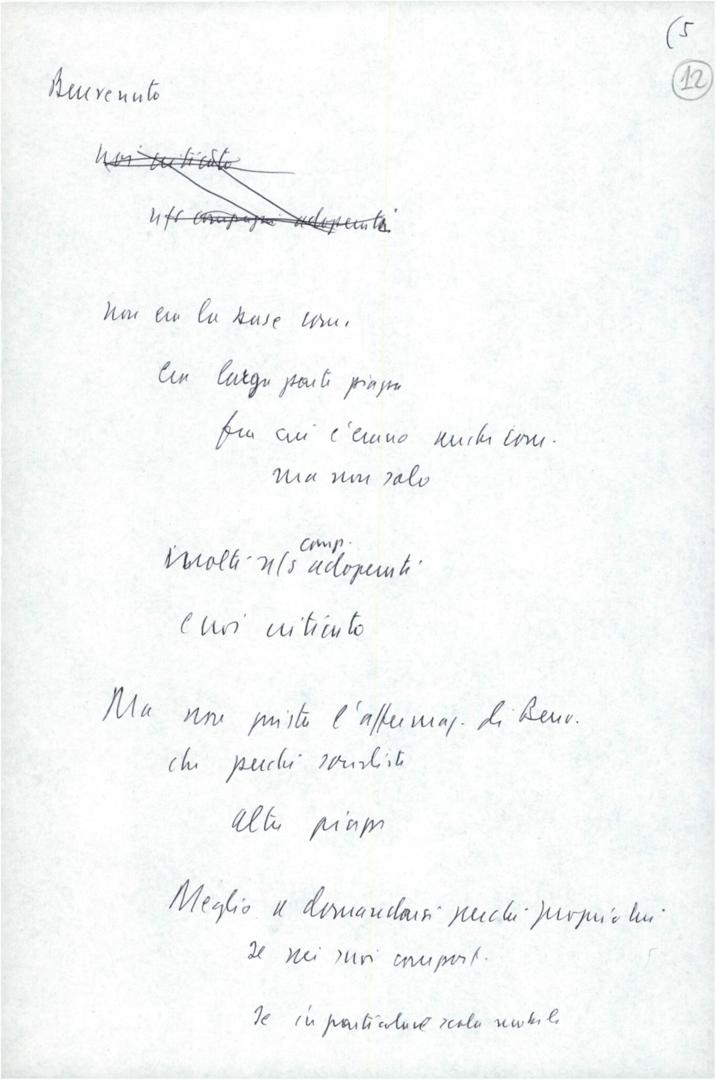 (5
12
Benvenuto
noi criticato
n/s compagni adoperati
non era la base com.
era larga parte piazza
fra cui c'erano anche com.
ma non solo
molti n/s comp. adoperati
e noi criticato
Ma non giusta l'affermaz. di Benv.
che perché socialista
altre piazze
Meglio a domandarsi perché proprio lui
se nei suoi comport.
se in particolare scala mobile